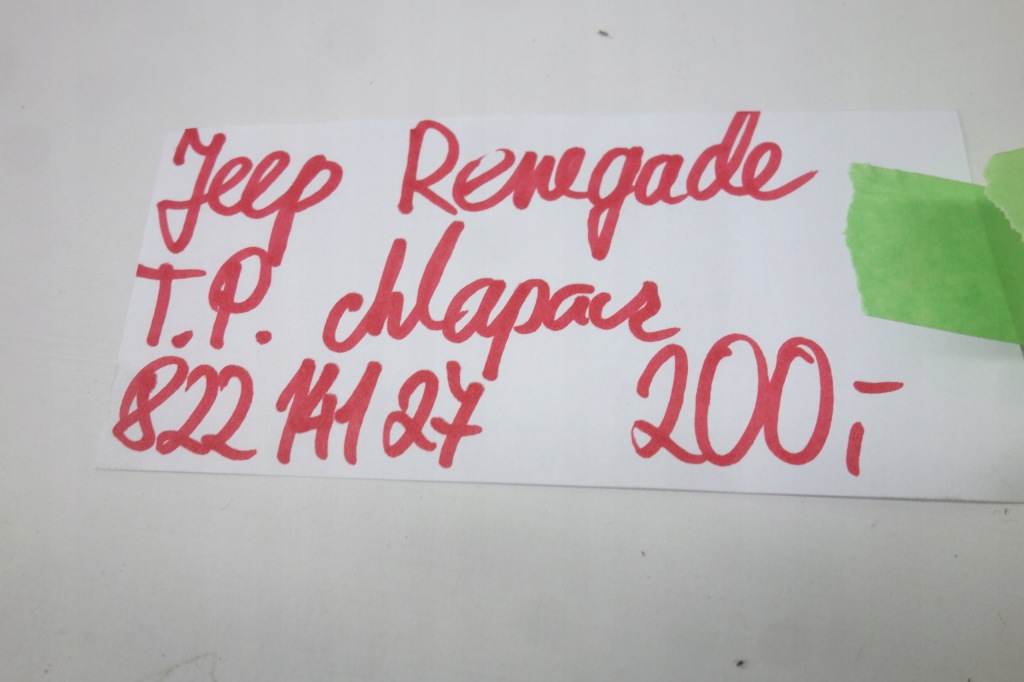 Jeep Renegade
T.P. chlapacz
822 141 27 200,-